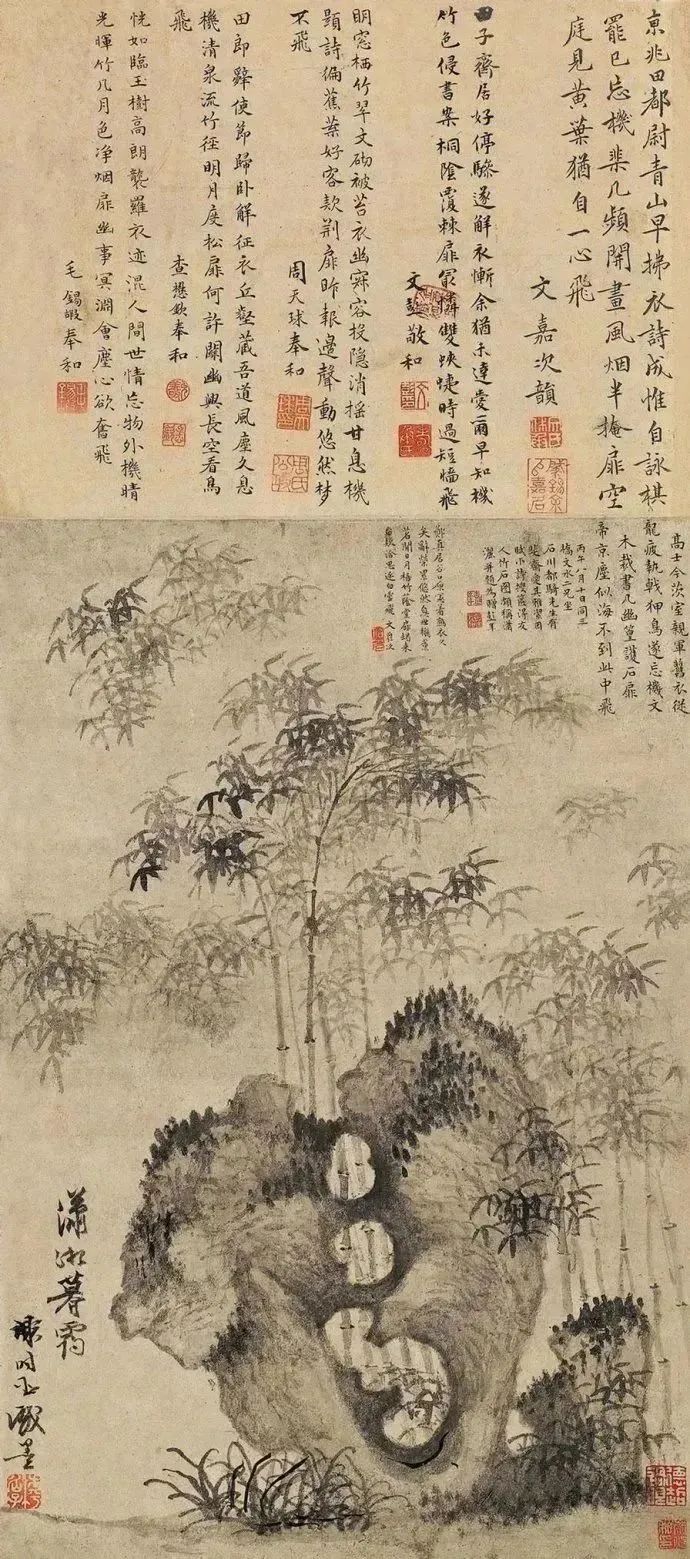 京兆田都尉青山早拂衣詩成惟自詠棋
罷已忘機棐几頻開畫風烟半掩扉空
庭見黃葉猶自一心飛
文嘉次韻
田子齋居好停驂遂解衣慚余猶未達愛爾早知機
竹色侵書案桐陰覆棘扉最憐雙蛺蝶時過短牆飛
文彭敬和
明窓栖竹翠文砌被苔衣幽寐容投隐消搖甘息機
題詩偏蕉葉好客款荆扉昨報邊聲動悠然梦
不飛
周天球奉和
田郎辭使節歸卧解征衣丘壑藏吾道風塵久息
機清泉流竹徑明月度松扉何許關幽興長空看鳥
飛
查懋欽奉和
恍如臨玉樹高朗襲羅衣迹混人間世情忘物外機晴
光暉竹几月色净烟扉幽事冥淵會塵心欲奮飛
毛錫嘏奉和
高士今茨室親軍舊衣從
龍疲執戟狎鳥遂忘機文
木裁書几幽篁護石扉
帝京塵似海不到此中飛
丙午八月十日同三
橋文水二兄坐
石川都騎先生有
斐齋愛其雅潔因
賦小詩
人竹石圖頗稱瀟
灑并題為贈彭年
瀟湘暮靄
謝時臣戲墨